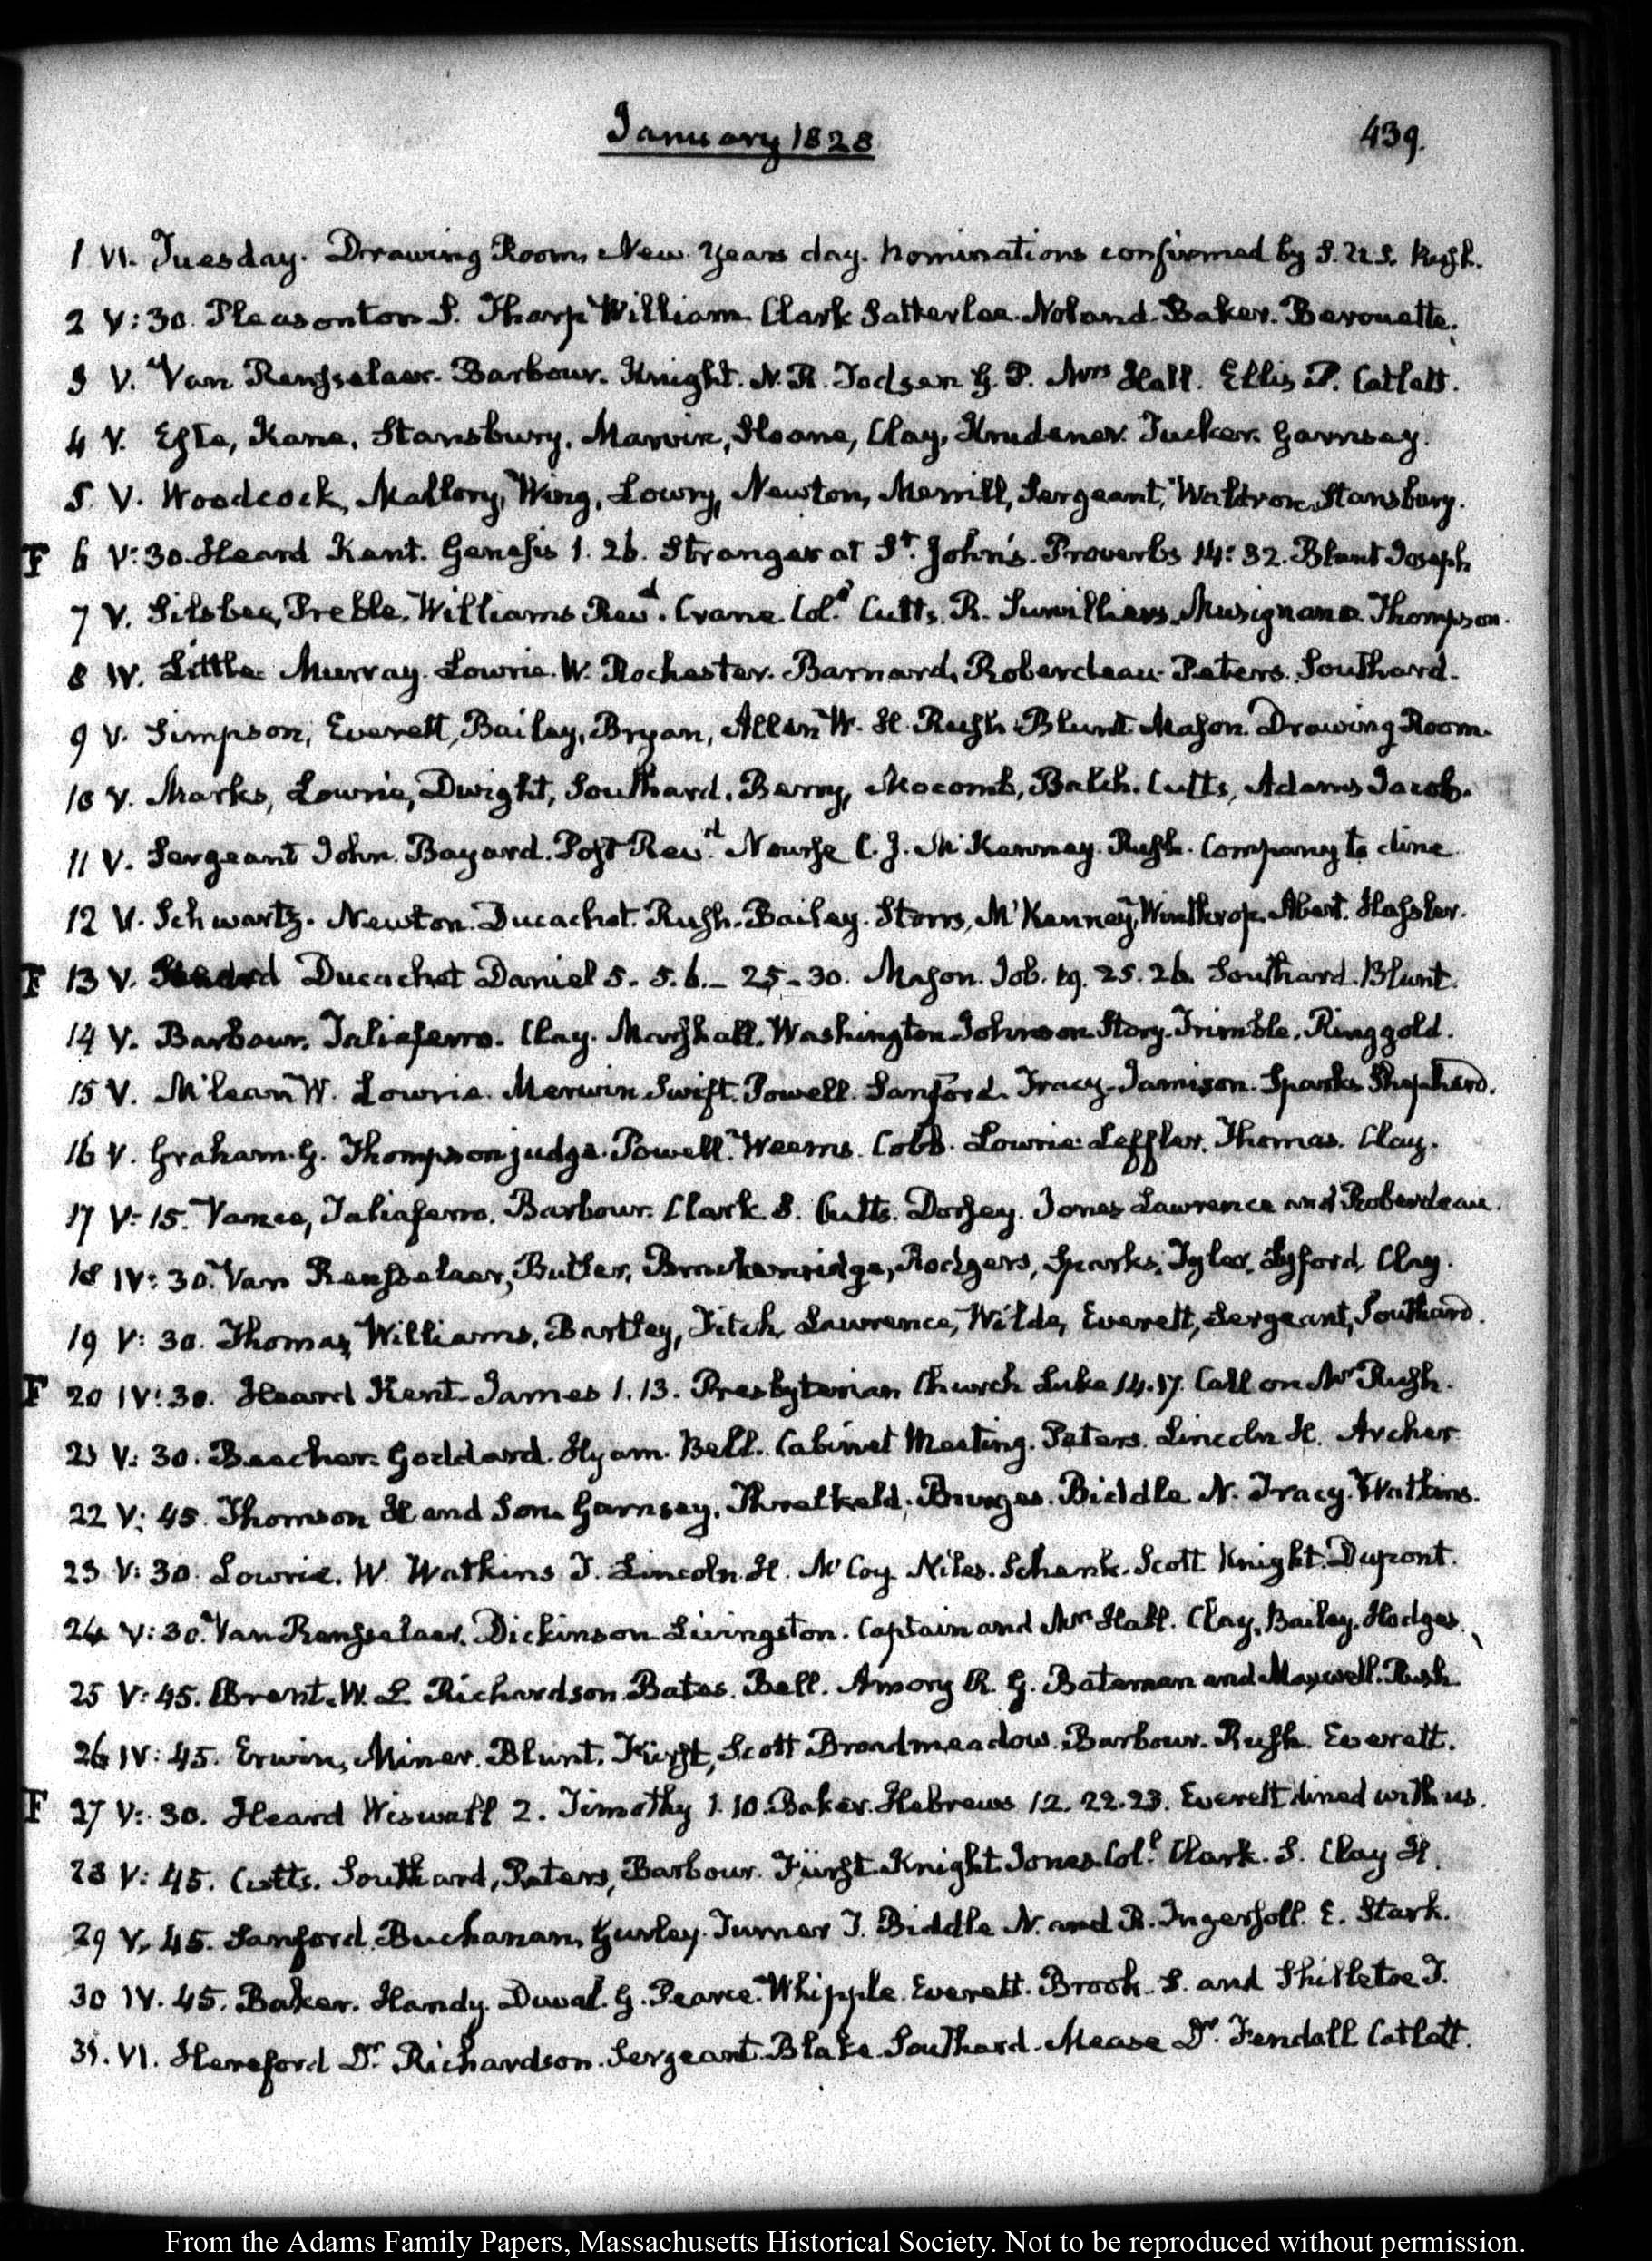 January 1828
439.
1 VI. Tuesday. Drawing Room, New Years day. Nominations confirmed by S.U.S. Rush.
2 V:30. Pleasonton S. Tharp William Clark Satterlee. Noland. Baker. Berouette.
3 V. Van Rensselaer. Barbour. Knight. N. R. Todsen G. P. Mrs Hall. Ellis P. Catlett.
4 V. Este, Kane, Stansbury, Marvin, Sloane, Clay, Krudener. Tucker. Garnsey.
5 V. Woodcock, Mallory, Wing, Lowry, Newton, Merrill, Sergeant, Waldron Stansbury.
F 6 V:30. Heard Kent. Genesis 1. 26. Stranger at St. John's. Proverbs 14:32. Blunt Joseph
7 V. Silsbee, Preble, Williams Revd. Crane Coll. Cutts. R. Musignano Thompson.
8 IV. Little Murray. Lowrie. W. Rochester. Barnard, Roberdeau Peters. Southard.
9 V. Simpson, Everett, Bailey, Bryan, Allen W. H. Rush Blunt Mason Drawing Room.
10 V. Marks, Lowrie, Dwight, Southard. Berry, Macomb, Balch. Cutts, Adams Jacob.
11 V. Sergeant John. Bayard. Post Revd. Nourse C. J. McKenney. Rush. Company to dine
12 V. Schwartz. Newton. Ducachet. Rush. Bailey. Storrs, McKenney, Winthrop. Abert. Hassler.
F 13 V. Heard Ducachet Daniel 5. 5. 6.- 25-30. Mason. Job. 19. 25. 26. Southard. Blunt.
14 V. Barbour. Taliaferro. Clay. Marshall. Washington Johnson Story. Trimble. Ringgold.
15 V. McLean W. Lowrie. Merwin Swift. Powell. Sanford. Tracy. Jamison. Sparks Shepherd.
16 V. Graham. G. Thompson judge. Powell. Weems. Cobb. Lowrie Leffler. Thomas. Clay.
17 V:15. Vance, Taliaferro, Barbour. Clark S. Cutts. Dorsey. Jones Lawrence and Roberdeau.
18 IV:30. Van Rensselaer, Butler, Brackenridge, Rodgers, Sparks, Tyler, Syford, Clay.
19 V:30. Thomas, Williams, Bartley, Fitch, Lawrence, Wilde, Everett, Sergeant, Southard.
F 20 IV:30. Heard Kent. James 1. 13. Presbyterian Church Luke 14.17. Call on Mr Rush.
21 V:30. Beecher. Goddard. Hyam. Bell. Cabinet Meeting. Peters. Lincoln H. Archer
22 V:45. Thomson H and Son. Garnsey. Threlkeld. Burges. Biddle N. Tracy. Watkins.
23 V:30. Lowrie. W. Watkins T. Lincoln. H. McCoy Niles. Schenk. Scott Knight. Dupont.
24 V:30. Van Rensselaer, Dickinson Livingston. Captain and Mrs Hall. Clay, Bailey, Hodges.
25 V:45. Brent. W. L. Richardson Bates. Bell. Amory R. G. Bateman and Maxwell. Rush
26 IV:45. Erwin, Miner. Blunt. Fürst, Scott Broadmeadow. Barbour. Rush. Everett.
F 27 V:30. Heard Wiswall 2. Timothy 1.10. Baker. Hebrews 12. 22.23. Everett dined with us.
28 V:45. Cutts. Southard, Peters, Barbour. Fürst Knight Jones Coll. Clark. S. Clay H.
29 V. 45. Sanford. Buchanan, Gurley. Turner T. Biddle N. and R. Ingersoll. E. Stark.
30 IV. 45. Baker. Handy. Duval. G. Pearce. Whipple. Everett. Brook. S. and Shilletoe T.
31. VI. Hereford Dr Richardson. Sergeant. Blake. Southard. Mease Dr. Fendall Catlett.
From the Adams Family Papers, Massachusetts Historical Society. Not to be reproduced without permission.